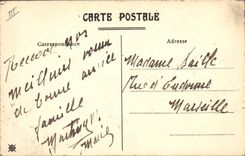 III
CARTE POSTALE
Correspondance
Adresse
Recevez nos
meilleurs voeux
de bonne année
famille
Madame
Rue d'Endoume
Marseille